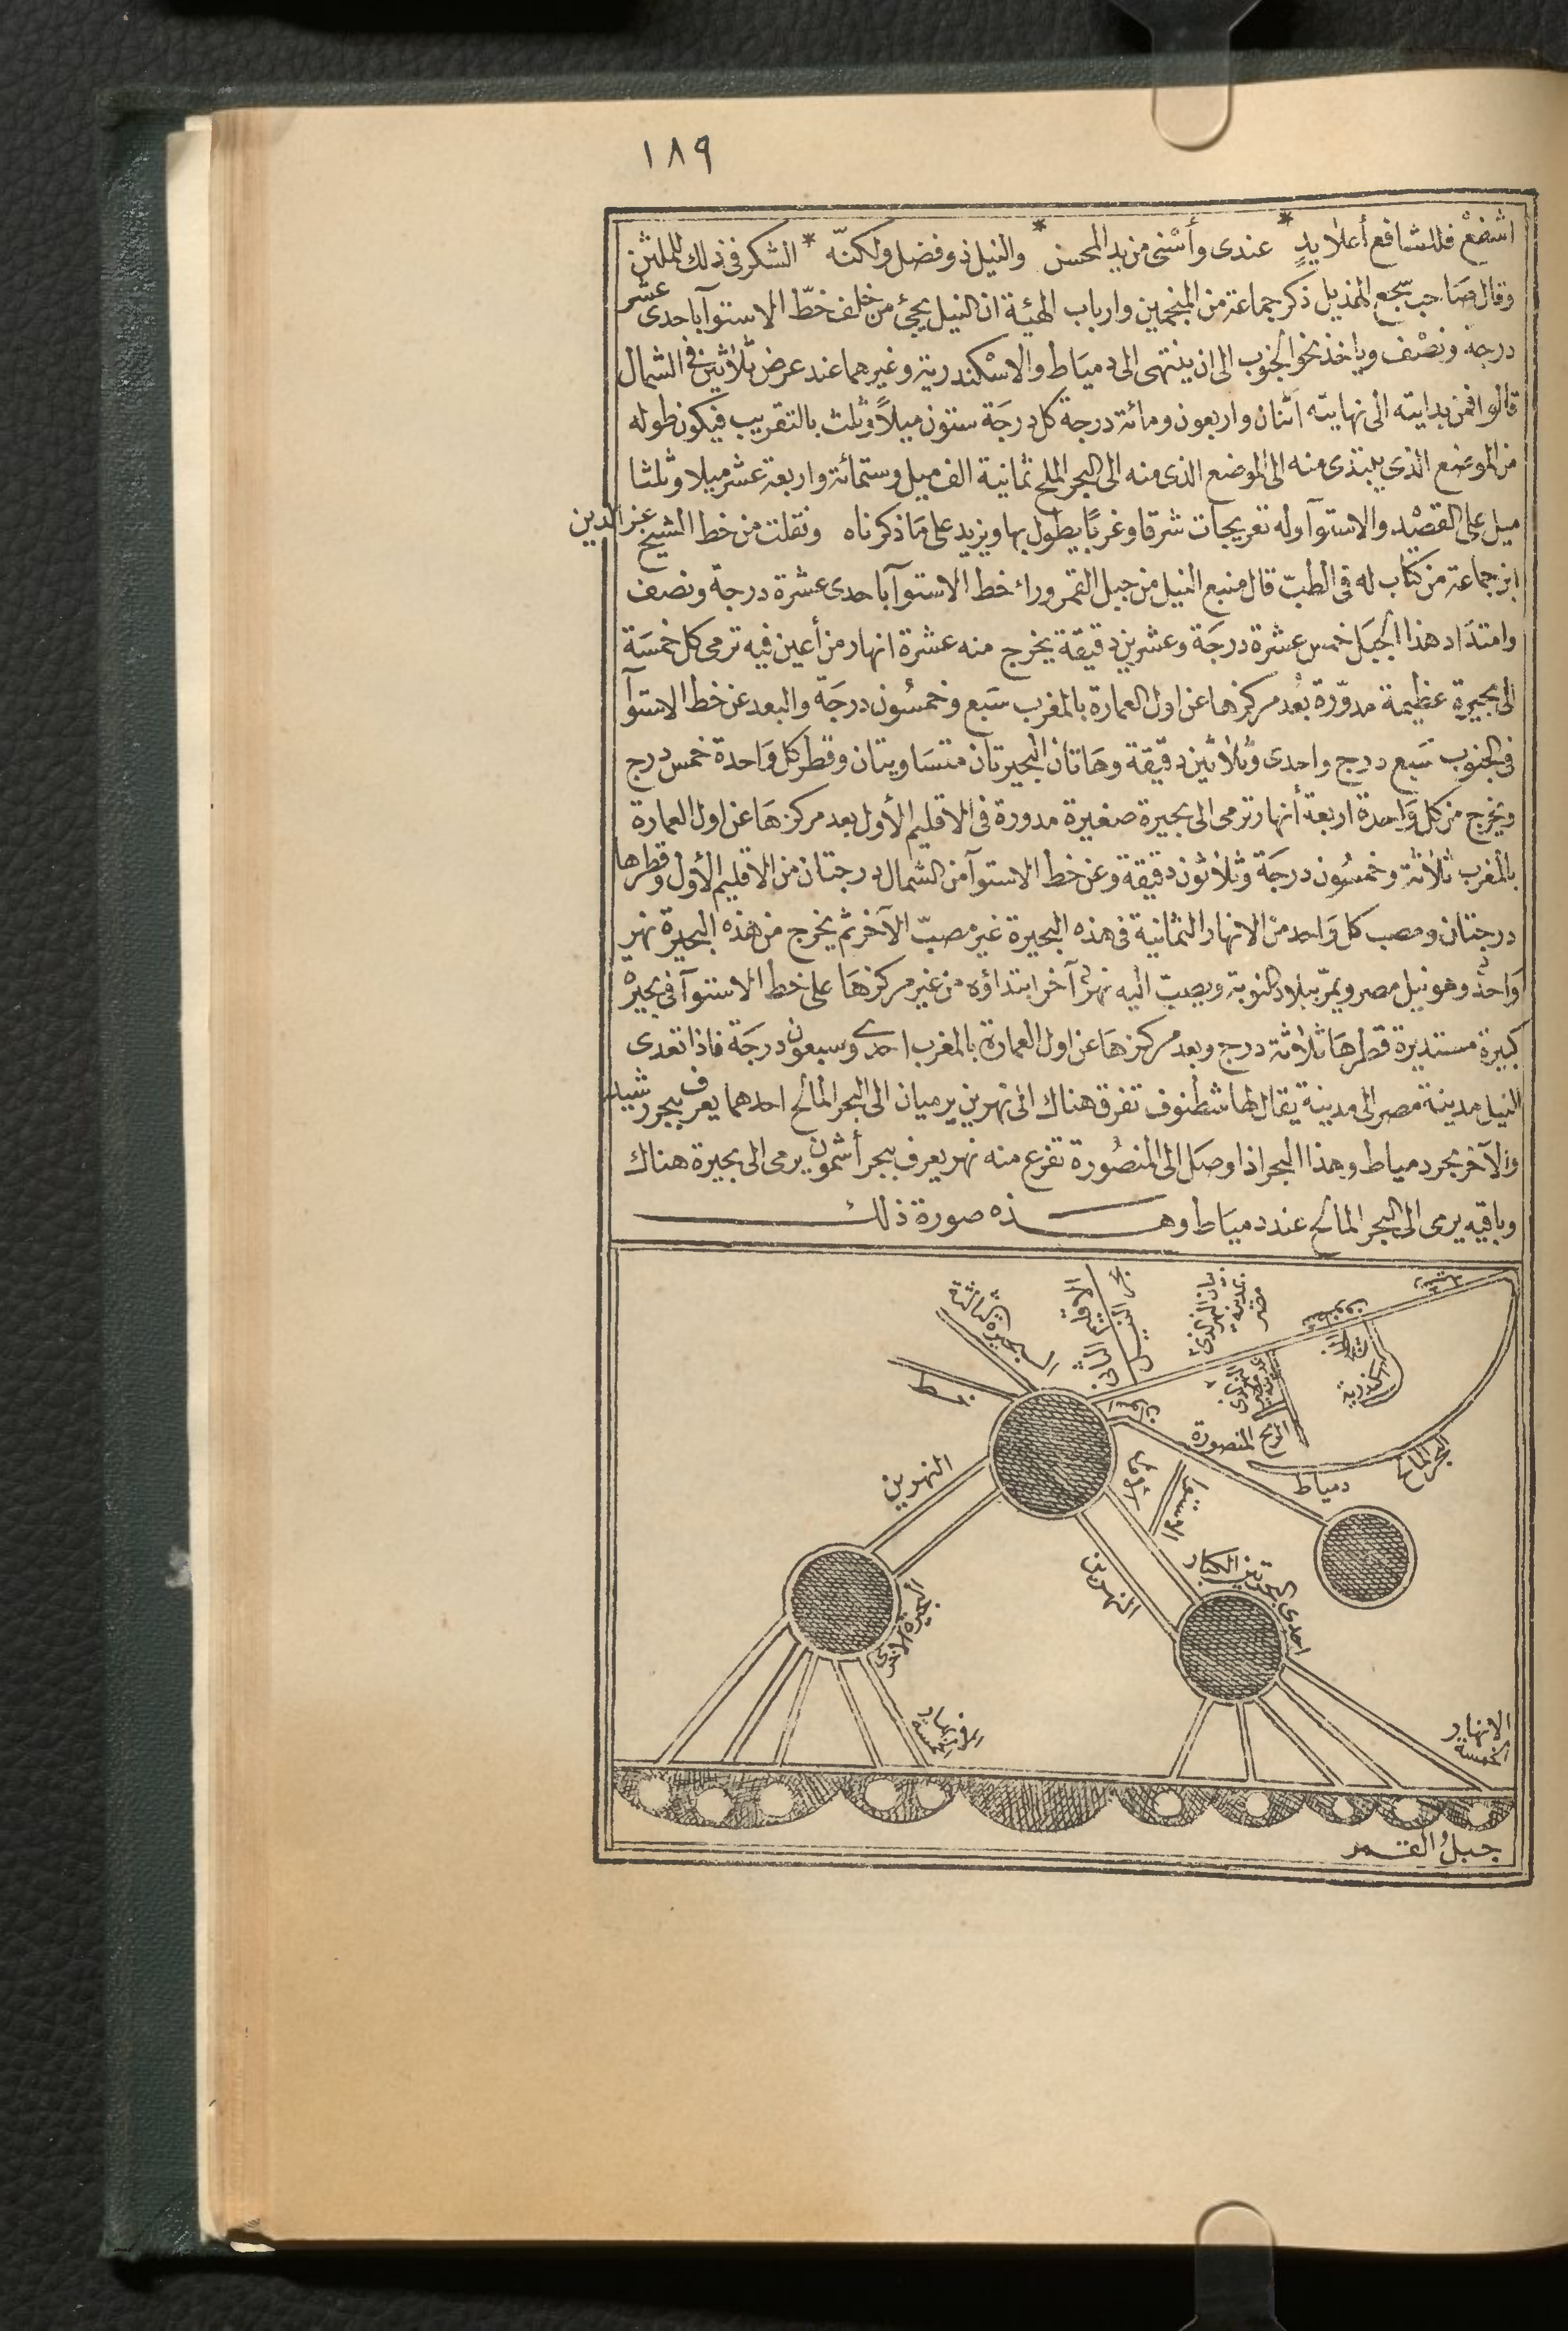 ١٨٩
اشفعْ فللشافع أعلا يدٍ * عندى وأسْنى من يد المحسن * والنيل ذو فضل ولكنّه * الشكر فى ذلك للملثن
وقال صَاحب سجع الهذيل ذكر جماعة من المنجمين وارباب الهيئة ان النيل يجئ من خلف خطّ الاستوآ باحدى عشر
درجة ونصْف وياخذ نحو الجنوب الى ان ينتهى الى دميَاط والاسْكندرية وغيرهما عند عرض ثلاثين فى الشمال
قالوا فمن بدايته الى نهايته اثنان واربعون ومائة درجة كل درجَة ستون ميلاً وثلث بالتقريب فيكون طوله
من الموضع الذى يبتدى منه الى الموضع الذى منه الى البحر الملح ثمانية الف ميل وستمائة واربعة عشر ميلا وثلثا
ميل على القصْد والاستوآ وله تعريجات شرقا وغربًا يطول بها ويزيد على مَا ذكرناه ونقلت من خط الشيخ عز الدين
ابن جماعة من كتاب له فى الطبّ قال منبع النيل من جبل القمر وراء خط الاستوآ باحدى عشرة درجة ونصف
وامتدَاد هذا الجبَل خمس عشرة درجَة وعشرين دقيقة يخرج منه عشرة انهار من أعين فيه ترمى كل خمسَة
الى بحيرة عظيمة مدوّرة بعْد مركزها عن اول العمارة بالمغرب سَبع وخمسُون درجَة والبعد عن خط الاستوآ
فى الجنوب سَبع درج واحدى وثلاثين دقيقة وهَاتان البحيرتان متسَاويتان وقطر كل وَاحدة خمس درج
ويخرج من كل وَاحدة اربعة أنهار ترمى الى بحيرة صغيرة مدورة فى الاقليم الأول بعد مركزهَا عن اول العمارة
بالمغرب ثلاثة وخمسُون درجَة وثلاثون دقيقة وعن خط الاستوآ من الشمال درجتان من الاقليم الأول وقطرها
درجتان ومصب كل وَاحد من الانهار الثمانية فى هذه البحيرة غير مصبّ الآخر ثم يخرج من هذه البحيرة نهر
وَاحدٌ وهو نيل مصر ويمرّ ببلاد النوبة ويصبّ اليه نهرٌ آخر ابتداؤه من غير مركزهَا على خط الاستوآ فى بحيرة
كبيرة مستديرة قطرهَا ثلاثة درج وبعد مركزهَا عن اول العمارة بالمغرب احدى وسبعون درجَة فاذا تعدى
النيل مدينة مصر الى مدينة يقال لها شطنوف تفرق هناك الى نهرين يرميان الى البحر المالح احدهما يعرف ببحر رشيد
والآخر بحر دمياط وهذا البحر اذا وصَل الى المنصُورة تفرع منه نهر يعرف ببحر أشمون يرمى الى بحيرة هناك
وباقيه يرمى الى البحر المالح عند دميَاط وهـــذه صورة ذلك
البحيرة الثالثة
الاقليم الثانى
بحر النيل
اسكندرية
البحر المالح
دمياط
المنصورة
النهرين
النهرين
الاستوا
احدى البحرتين الكبار
بحيرة الاخرى
الانهار الخمسة
الانهار
الخمسة
جبل القمر